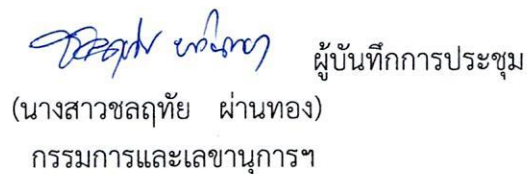 ผู้บันทึกการประชุม
(นางสาวชลฤทัย ผ่านทอง)
กรรมการและเลขานุการฯ